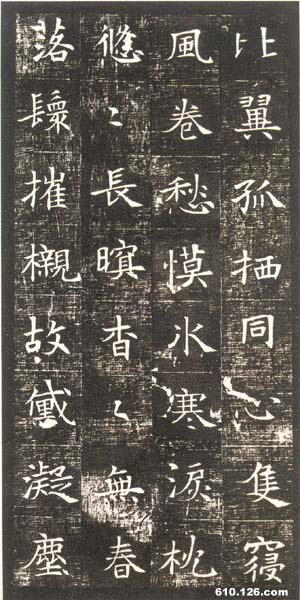 比翼孤栖同心隻寢
風卷愁幙氷寒淚枕
悠々長暝杳々無春
落鬟摧櫬故黛凝塵
610.126.com